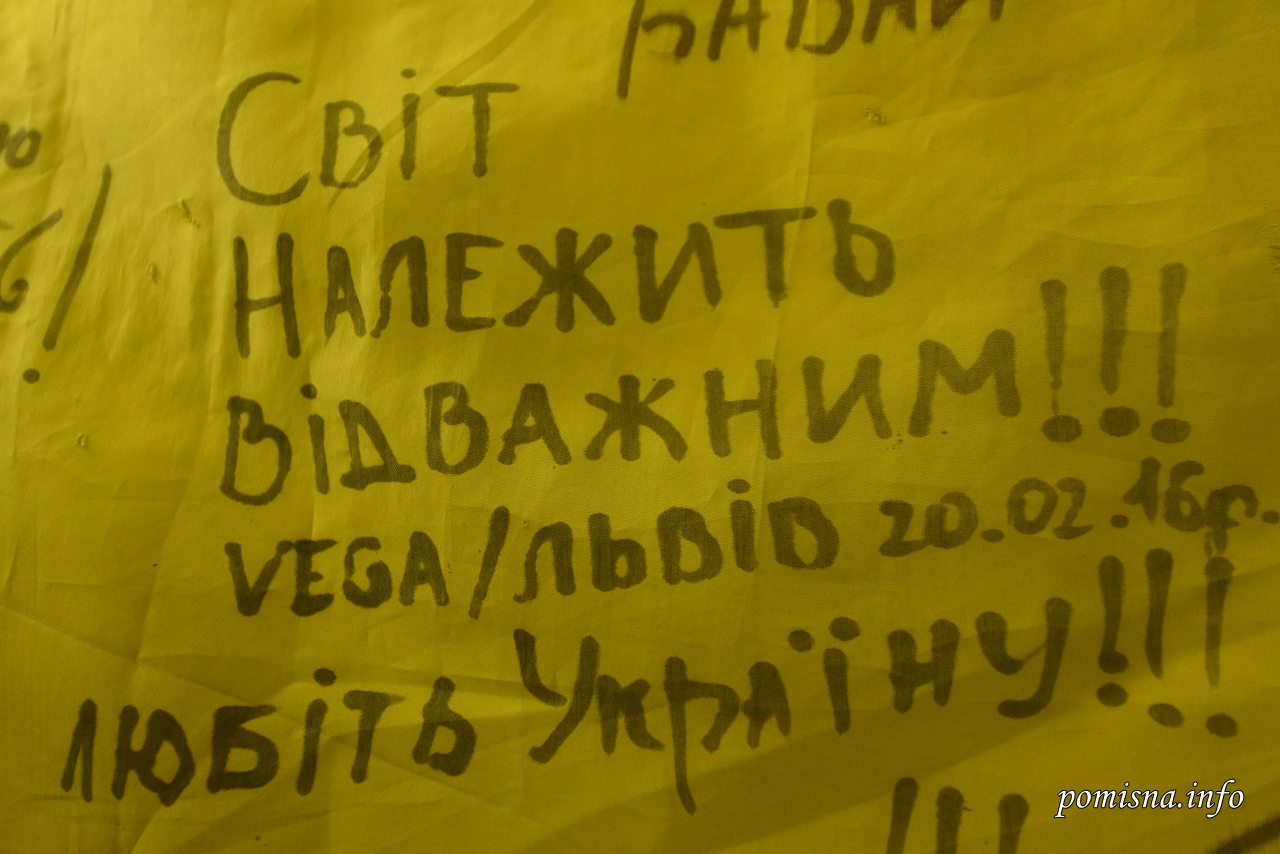 Світ
НАЛЕЖИТЬ
ВіДВАЖНИМ!!!
VEGA/ЛЬВіВ 20.02.16р.
ЛЮБіТЬ УкрАїНУ!!!
!!!
pomisna.info